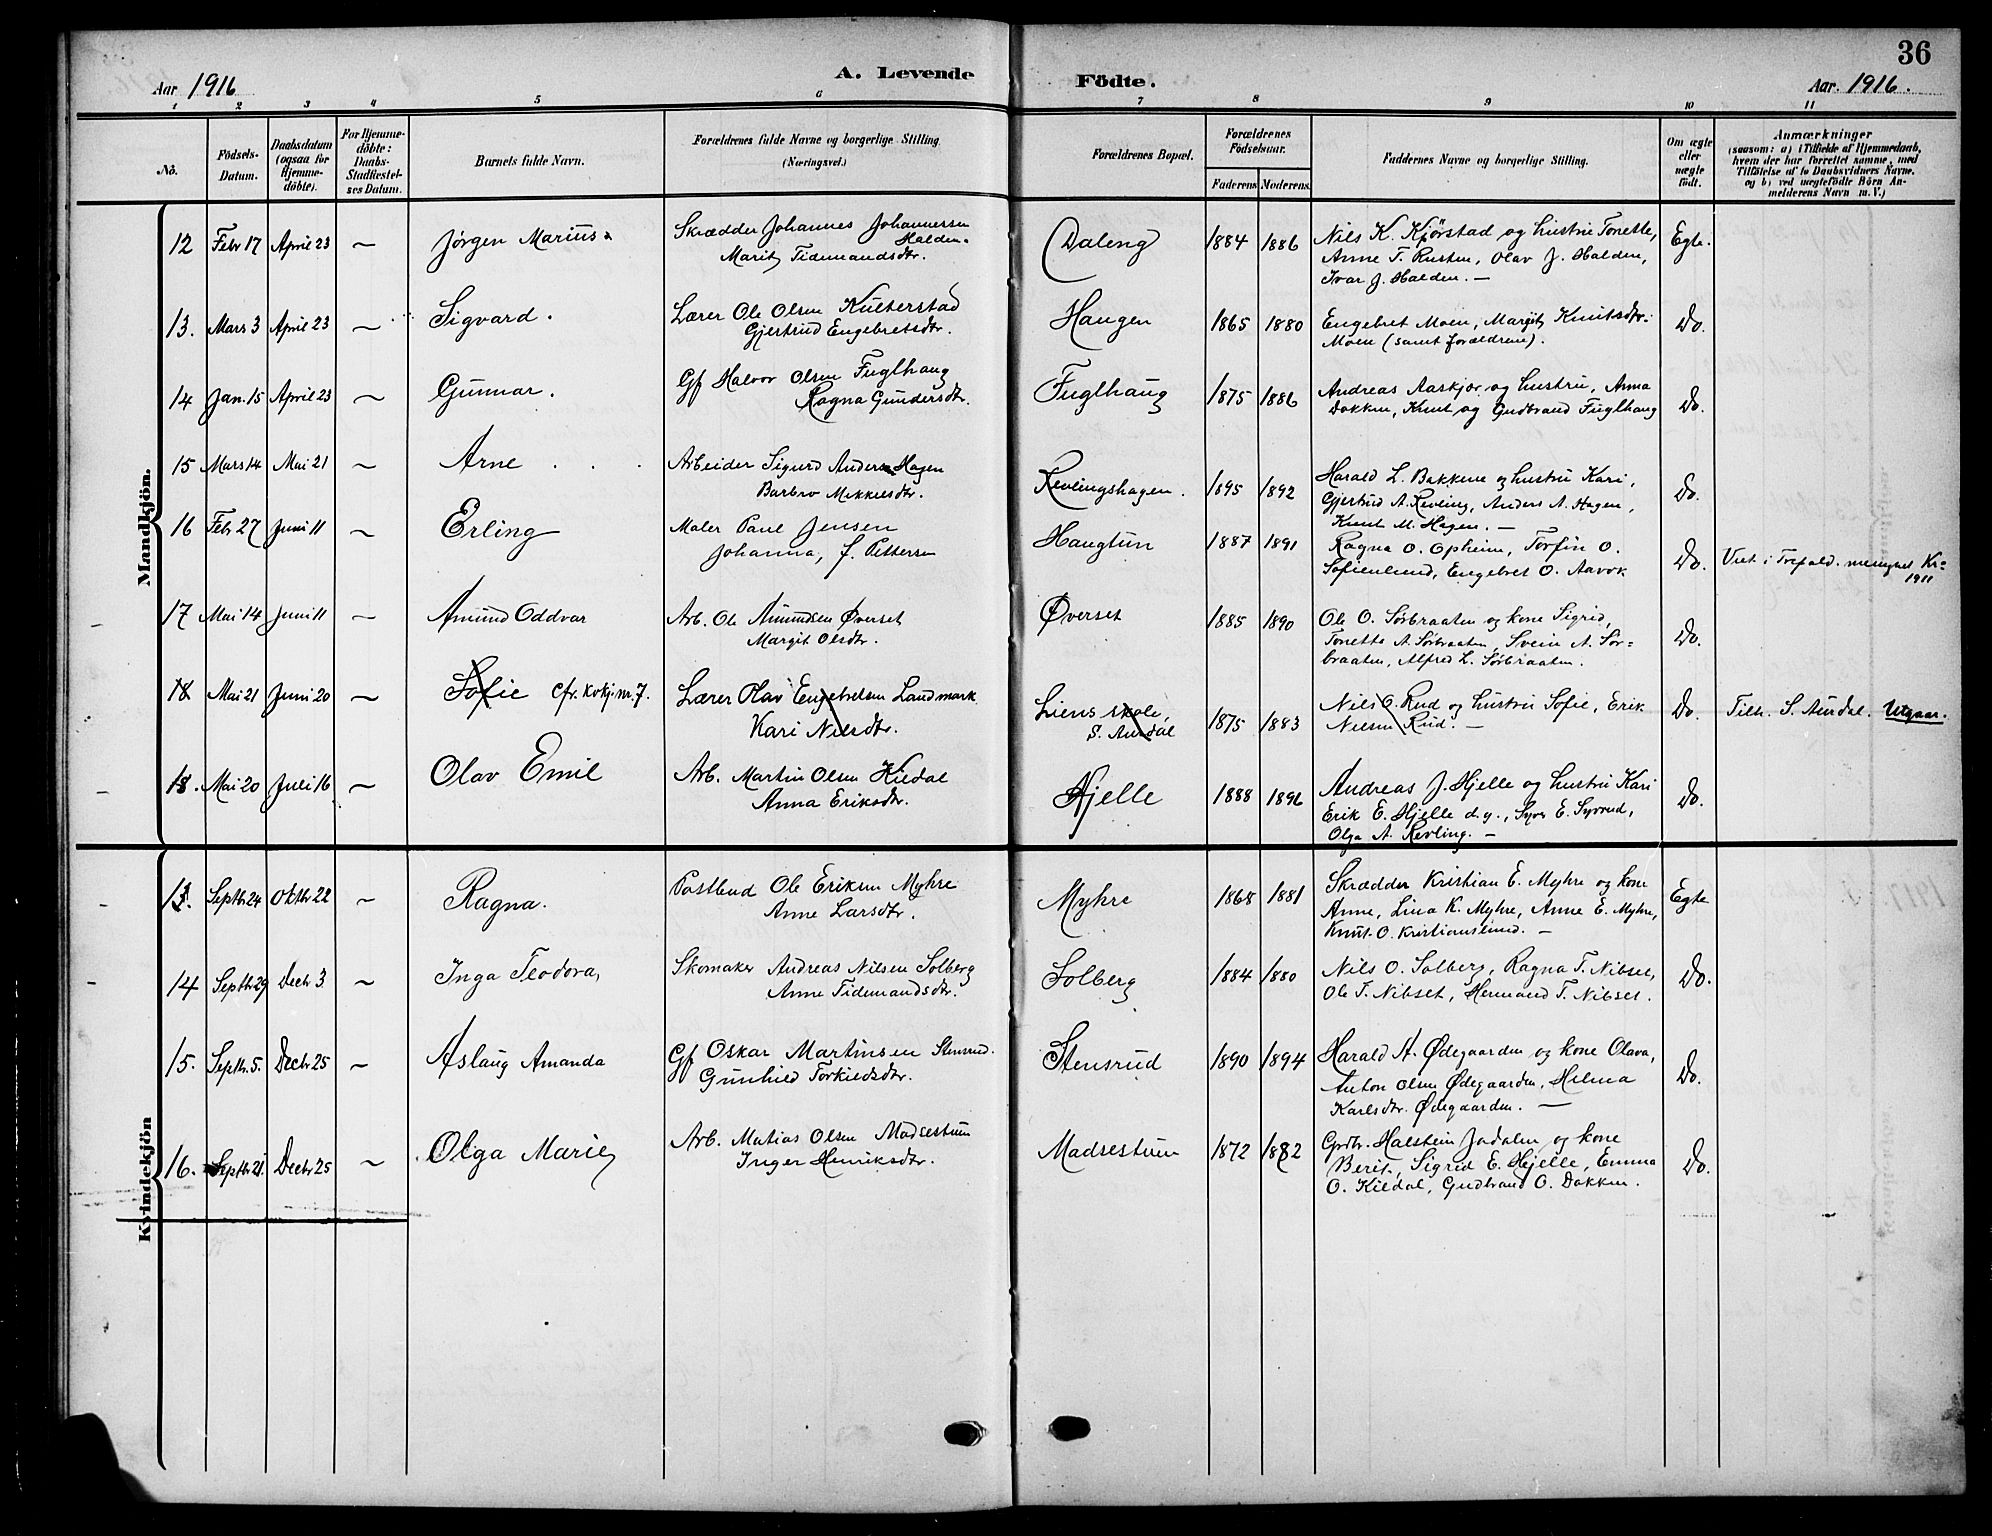 36
Aar 1916
A. Levende Födte.
Aar. 1916.
1 2 3 4 5 6 7 8 9 10 11
No.
Födsels-Datum.
Daabsdatum (ogsaa for Hjemme-döbte).
For Hjemme-döbte: Daabs-Stadfæstel-ses Datum.
Barnets fulde Navn.
Forældrenes fulde Navne og borgerlige Stilling. (Næringsvei.)
Forældrenes Bopæl.
Forældrenes Födselsaar.
Faderens. Moderens.
Faddernes Navne og borgerlige Stilling.
Om ægte eller uægte født.
Anmærkninger
(saasom: a) i Tilfælde af Hjemmedaab, hvem der har forrettet samme, med Tilföielse af to Daabsvidners Navne. og b) ved uægtefödte Börn An-melderens Navn m. V.)
Mandkjön.
12 Febr 17 April 23 ~ Jørgen Marius. Skrædder Johannes Johannessen Halden. Daleng 1884 1886 Nils K. Kjörstad og hustru Tonette, Egte.
Marit Tidemandsdtr. Anne T. Rusten, Olav J. Halden,
Ivar J. Halden. —
13. Mars 3 April 23 ~ Sigvard. Lærer Ole Olsen Kulterstad Haugen 1865 1880 Engebret Moen, Margit Knutsdtr. Do.
Gjertrud Engebretsdtr. Moen (samt forældrene).
14 Jan. 15 April 23 ~ Gunnar. Gf Halvor Olsen Fuglhaug Fuglhaug 1875 1886 Andreas Aaskjær og hustru, Anna Do.
Ragna Gundersdtr. Dokken, Knut og Gudbrand Fuglhaug
15 Mars 14 Mai 21 ~ Arne Arbeider Sigurd Anders. Hagen Revlingshagen. 1895 1892 Harald L. Bakkene og hustru Kari, Do.
Barbro Mikkelsdtr. Gjertrud A. Revling, Anders A. Hagen,
Knut M. Hagen. —
16 Febr 27 Juni 11 ~ Erling Maler Paul Jensen Haugtun 1887 1891 Ragna O. Opheim, Torfin O. Do.
Johanna, f. Pettersen Sofienlund, Engebret O. Aavok
Viet i Trefold. menighet Kr. 1911
17 Mai 14 Juni 11 ~ Amund Oddvar Arb. Ole Amundsen Øverset Øverset 1885 1890 Ole O. Sørbraaten og kone Sigrid, Do.
Margit Olsdtr. Tonette A. Sørbraaten, Svein A. Sør-
braaten, Alfred L. Sørbraaten.
18 Mai 21 Juni 20 ~ Sofie cfr. kvkj. nr. 7. Lærer Olav Engebretsen Landmark Liens skole, 1875 1883 Nils O. Rud og hustru Sofie, Erik Do. Tilh. S. Aurdal. Utgaar.
Kari Nilsdtr. S. Aurdal Nilsen Rud. —
18. Mai 20 Juli 16 ~ Olav Emil Arb. Martin Olsen Kildal Hjelle 1888 1896 Andreas J. Hjelle og hustru Kari Do.
Anna Eriksdtr. Erik E. Hjelle d.y., Syver E. Syverud,
Olga A. Revling. —
Kvindekjön
13. Septbr 24 Oktbr 22 ~ Ragna. Postbud Ole Eriksen Myhre Myhre 1868 1881 Skrædder Kristian E. Myhre og kone Egte
Anne Larsdtr. Anne, Lina K. Myhre, Anne E. Myhre,
Knut O. Kristianslund. —
14 Septbr 29 Decbr 3 ~ Inga Teodora, Skomaker Andreas Nilsen Solberg Solberg 1884 1880 Nils O. Solberg, Ragna T. Nibset, Do.
Anne Tidemandsdtr. Ole T. Nibset, Hermand T. Nibset.
15. Septbr. 5. Decbr 25 ~ Aslaug Amanda Gf Oskar Martinsen Stensrud. Stensrud 1890 1894 Harald A. Ødegaarden og kone Olava, Do.
Gunhild Torkildsdtr. Anton Olsen Ødegaarden, Hilma
Karlsdtr. Ødegaarden. —
16. Septbr 21. Decbr 25 ~ Olga Marie Arb. Matias Olsen Madsestuen Madsestuen 1872 1882 Grdbr. Halstein Jødalen og kone Do.
Inger Henriksdtr. Berit, Sigrid E. Hjelle, Emma
O. Kildal, Gudbrand O. Dokken.